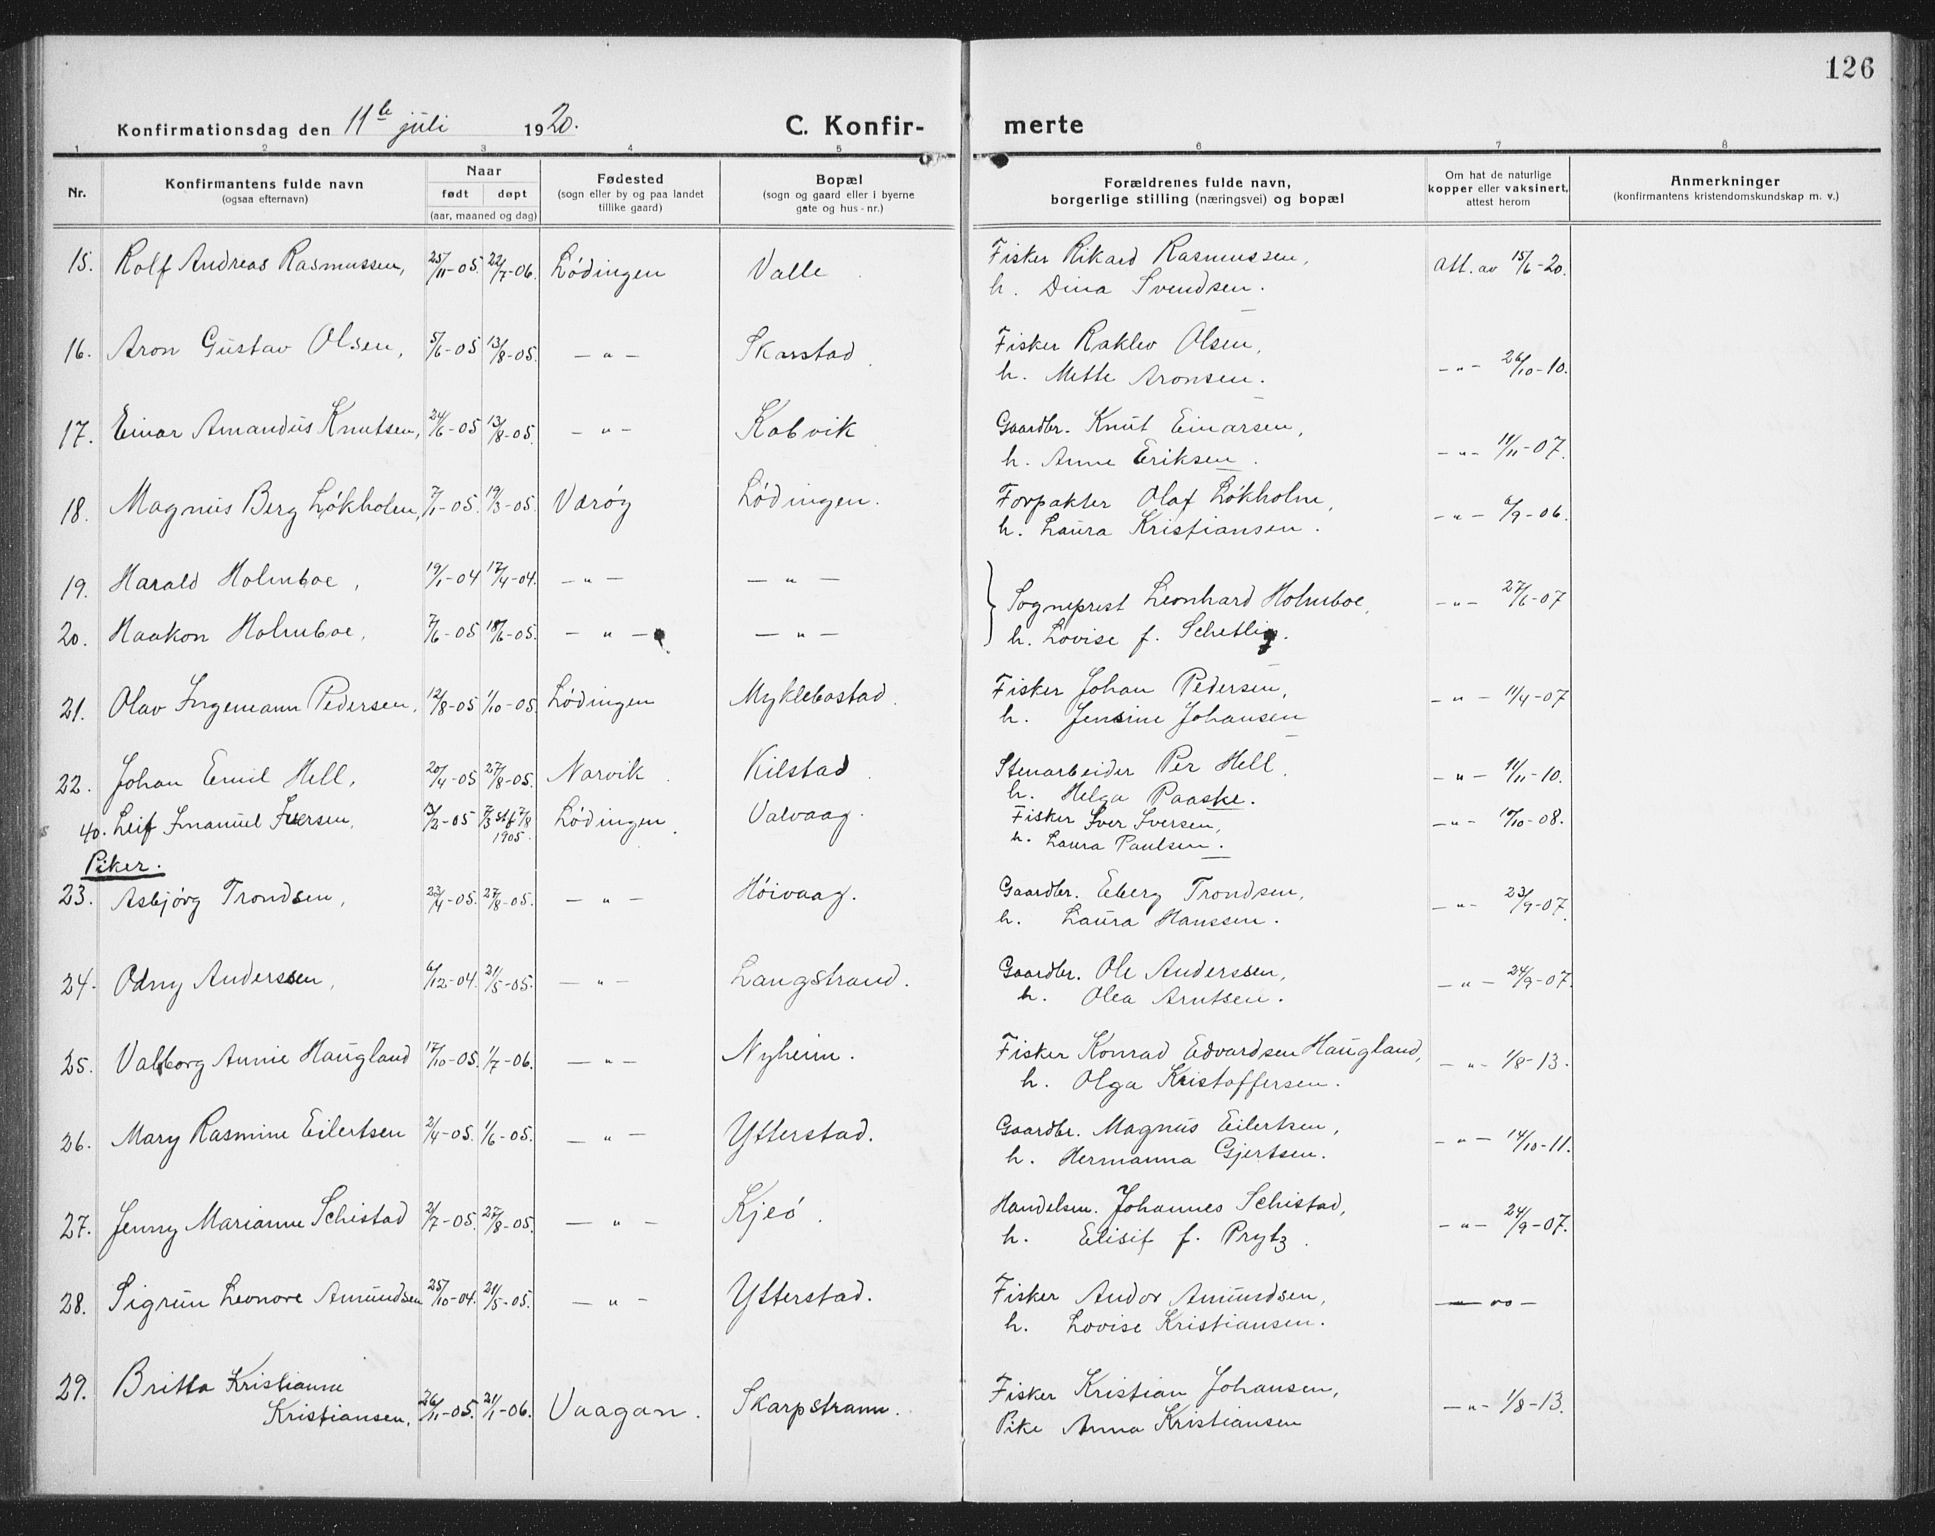 126
Konfirmationsdag den 11te juli 1920. C. Konfir- merte
1 2 3 4 5 6 7 8
Nr. Konfirmantens fulde navn (ogsaa efternavn) Naar født døpt (aar, maaned og dag) Fødested (sogn eller by og paa landet tillike gaard) Bopæl (sogn og gaard eller i byerne gate og hus-nr.) Forældrenes fulde navn, borgerlige stilling (næringsvei) og bopæl Om hat de naturlige kopper eller vaksinert, attest herom Anmerkninger (konfirmantens kristendomskundskap m. v.)
15. Rolf Andreas Rasmussen, 25/11-05. 22/7-06. Lødingen Valle. Fisker Rikard Rasmussen, Att. av 15/6-20.
h. Dina Svendsen.
16. Aron Gustav Olsen, 5/6-05 13/8-05. — " — Skarstad. Fisker Raklev Olsen, — " — 26/10-10.
h. Mette Aronsen.
17. Einar Amandus Knutsen, 24/6-05 13/8-05. — " — Kobvik Gaardbr. Knut Einarsen, — " — 11/11-07.
h. Anne Eriksen.
18. Magnus Berg Løkholm, 7/1-05. 19/3-05. Værøy Lødingen. Forpakter Olaf Løkholm, — " — 6/9-06.
h. Laura Kristiansen.
19. Harald Holmboe, 19/1-04 17/4-04. — " — — " — Sogneprest Leonhard Holmboe, — " — 27/6-07
20. Haakon Holmboe, 7/6-05 18/6-05. — " — — " — h. Lovise f. Schetlig.
21. Olav Ingemann Pedersen, 12/8-05 1/10-05. Lødingen Myklebostad. Fisker Johan Pedersen, — " — 11/4-07
h. Jensine Johansen
22. Johan Emil Hell, 20/4-05 27/8-05. Narvik. Kilstad. Stenarbeider Per Hell, — " — 11/11-10.
h. Helga Paaske.
40. Leif Imanuel Iversen, 13/2-05 7/3 stf 7/8 1905. Lødingen. Valvaag. Fisker Iver Iversen, — " — 10/10-08.
h. Laura Paulsen.
Piker.
23. Asbjørg Trondsen, 23/4-05. 27/8-05. — " — Høivaag. Gaardbr. Eberg Trondsen, — " — 23/9-07.
h. Laura Hanssen.
24. Odny Anderssen, 6/12-04. 21/5-05. — " — Langstrand. Gaardbr. Ole Anderssen, — " — 24/9-07.
h. Olea Arntsen.
25. Valborg Annie Haugland 17/10-05. 1/7-06. — " — Nyheim. Fisker Konrad Edvardsen Haugland, — " — 1/8-13.
h. Olga Kristoffersen.
26. Mary Rasmine Eilertsen 2/4-05. 1/6-05. — " — Ytterstad. Gaardbr. Magnus Eilertsen, — " — 14/10-11.
h. Hermanna Gjertsen.
27. Jenny Marianne Schistad 2/7-05. 27/8-05. — " — Kjeø. Handelsm. Johannes Schistad, — " — 24/9-07.
h. Elisif f. Prytz.
28. Sigrun Leonore Amundsen 25/10-04. 21/5-05. — " — Ytterstad. Fisker Andor Amundsen, — " —
h. Lovise Kristiansen.
29. Britta Kristianne Fisker Kristian Johansen,
Kristiansen, 26/11-05. 21/1-06. Vaagan. Skarpstrann. Pike Anna Kristiansen — " — 1/8-13.